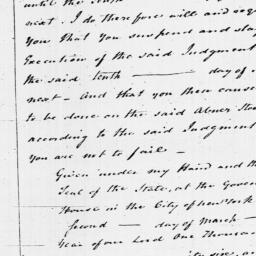 until the
next. I do therefore will and
You that You suspend and stay
Execution of the said Judgment
the said tenth — day of
next – And that you then cause
to be done on the said Abner
according to the said Judgment
You are not to fail –
Given under my Hand and the
Seal of the State, at the Govern
House in the City of New York
second — day of March —
Year of our Lord One Thousan